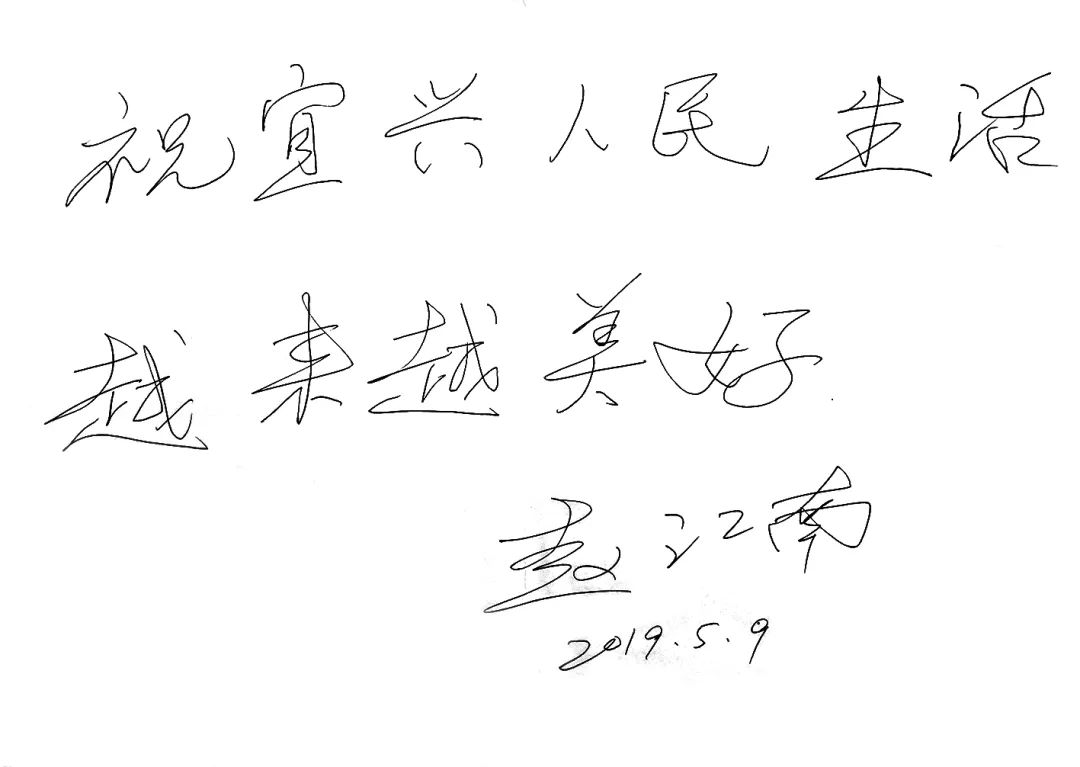 祝宜兴人民生活
越来越美好
赵江南
2019.5.9